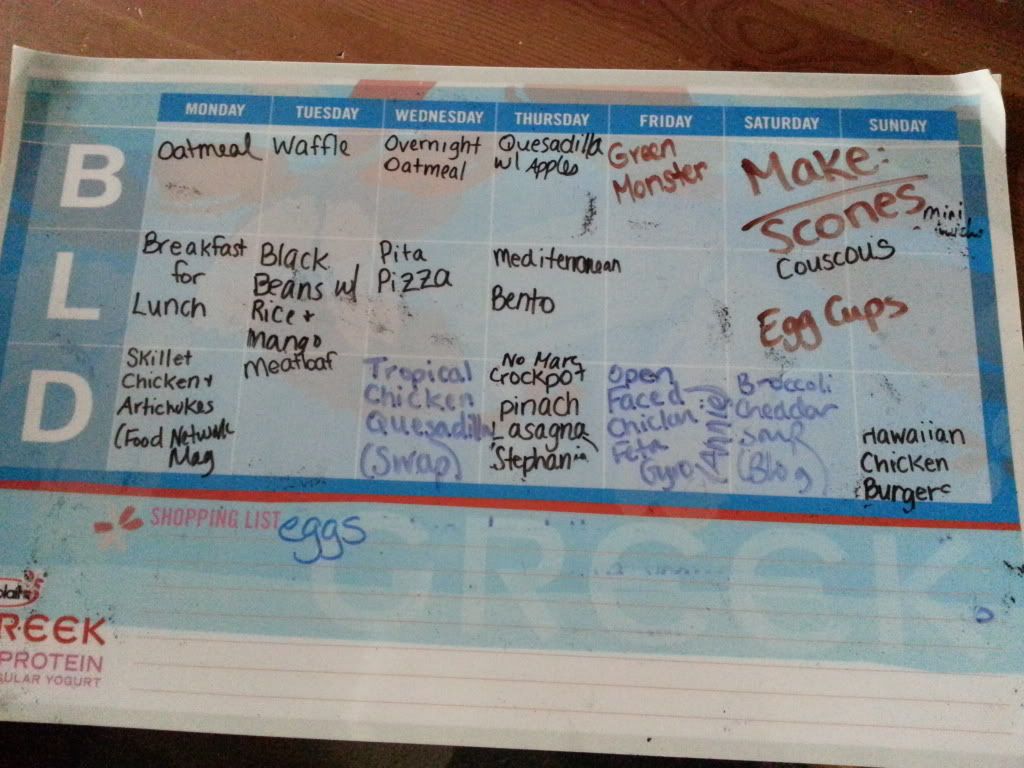 MONDAY TUESDAY WEDNESDAY THURSDAY FRIDAY SATURDAY SUNDAY
B
Oatmeal
Waffle
Overnight
Oatmeal
Quesadilla
w/ Apples
Green
Monster
Make:
Scones
mini
L
Breakfast
for
Lunch
Black
Beans w/
Rice +
Mango
Pita
Pizza
Mediterranean
Bento
Couscous
Egg Cups
D
Skillet
Chicken +
Artichokes
(Food Network
Mag
Meatloaf
Tropical
Chicken
Quesadilla
(Swap)
No Marc
Crockpot
pinach
Lasagna
Stephani
Open
Faced
Feta
Gyro (Annie)
Broccoli
Cheddar
Soup
(Blog)
Hawaiian
Chicken
Burgers
SHOPPING LIST eggs
GREEK
plait
REEK
PROTEIN
GULAR YOGURT